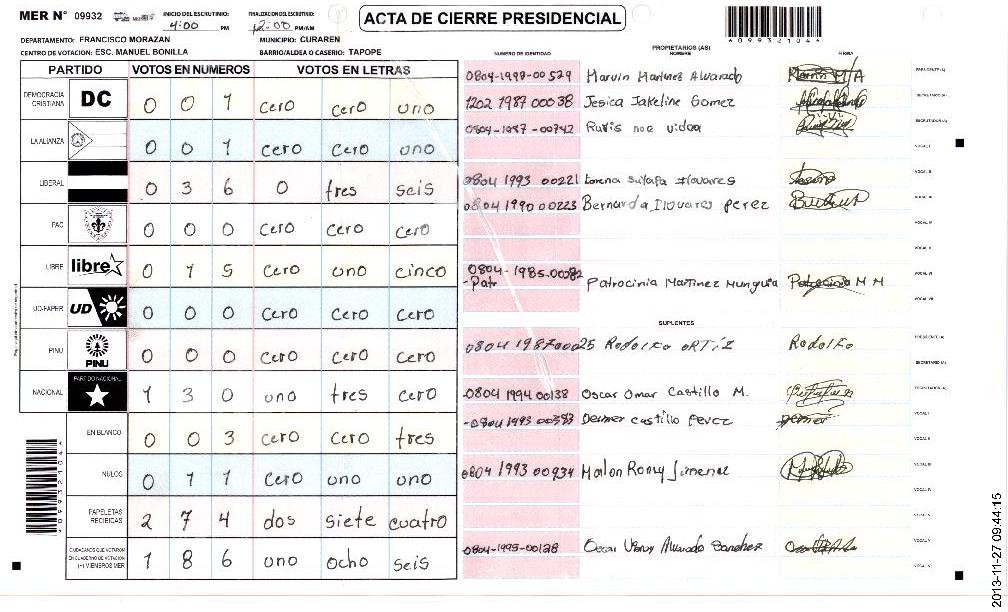 MER N° 09932 INICIO DEL ESCRUTINIO: 4:00 PM FINALIZACION DEL ESCRUTINIO: 12:00 PM/AM ACTA DE CIERRE PRESIDENCIAL
DEPARTAMENTO: FRANCISCO MORAZAN MUNICIPIO: CURAREN
CENTRO DE VOTACION: ESC. MANUEL BONILLA BARRIO/ALDEA O CASERIO: TAPOPE
099321044
NUMERO DE IDENTIDAD PROPIETARIOS (AS) NOMBRE FIRMA
PARTIDO VOTOS EN NUMEROS VOTOS EN LETRAS
DEMOCRACIA CRISTIANA DC 0 0 1 cero cero uno
LA ALIANZA 0 0 1 cero cero uno
LIBERAL 0 3 6 0 tres seis
PAC 0 0 0 cero cero cero
LIBRE libre 0 1 5 cero uno cinco
UD-FAPER UD 0 0 0 cero cero cero
PINU PINU 0 0 0 cero cero cero
NACIONAL PARTIDO NACIONAL 1 3 0 uno tres cero
EN BLANCO 0 0 3 cero cero tres
NULOS 0 1 1 cero uno uno
PAPELETAS RECIBIDAS 2 7 4 dos siete cuatro
CIUDADANOS QUE VOTARON EN CUADERNO DE VOTACION (+) MIEMBROS MER 1 8 6 uno ocho seis
0804-1998-00529 Marvin Martinez Alvarado PRESIDENTE (A)
1202 1987 00038 Jesica Jakeline Gomez SECRETARIO (A)
0804-1987-00742 Rutis noe vidoa ESCRUTADOR (A)
VOCAL I
0804 1993 00221 Lorena suyapa VOCAL II
0804 1990 00223 Bernarda perez VOCAL III
VOCAL IV
VOCAL V
0804-1985-00082 -Patr Patrocinia Martinez Munguia Patrocinia M M VOCAL VI
VOCAL VII
SUPLENTES
0804 1987 00025 Rodolfo ORTIZ Rodolfo PRESIDENTE (A)
SECRETARIO (A)
0804 1994 00138 Oscar Omar Castillo M. ESCRUTADOR (A)
0804 1993 00383 Deimer castillo Perez VOCAL I
VOCAL II
0804 1993 00934 Marlon Romy Jimenez VOCAL III
VOCAL IV
0804-1995-00128 Oscar Alvarado Sanchez VOCAL V
VOCAL VI
099321044
2013-11-27 09:44:15